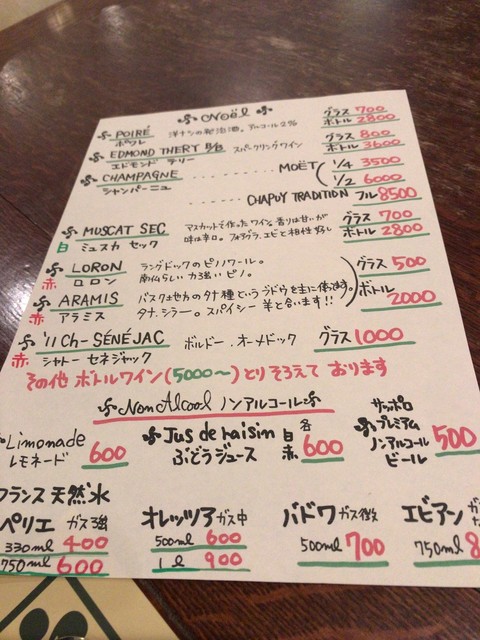 Noël
POIRÉ 洋ナシの発泡酒。アルコール2% グラス 700
ポワレ ボトル 2800
EDMOND THERY B/B スパークリングワイン グラス 800
エドモンド テリー ボトル 3600
CHAMPAGNE MOËT 1/4 3500
シャンパーニュ 1/2 6000
CHAPUY TRADITION フル 8500
MUSCAT SEC マスカットで作ったワイン。香りは甘いが グラス 700
白 ミュスカ セック 味は辛口。フォアグラ、エビと相性好し ボトル 2800
LORON ラングドックのピノノワール。 グラス 500
赤 ロロン 南仏らしい力強いピノ。
ARAMIS バスク土セカのタナ種というブドウを主に使ってます ボトル
赤 アラミス タナ.シラー。スパイシー 羊と合います!! 2000
'11 Ch-SÉNÉJAC ボルドー.オーメドック グラス 1000
赤 シャトー セネジャック
その他 ボトルワイン(5000〜)とりそろえて おります
Non Alcool ノンアルコール
Limonade 600
レモネード
Jus de raisin 白 各
ぶどうジュース 赤 600
サッポロ
プレミアム
ノンアルコール 500
ビール
フランス 天然水
ペリエ ガス強
330ml 400
750ml 600
オレッツア ガス中
500ml 600
1l 900
バドワ ガス微
500ml 700
エビアン
750ml 8